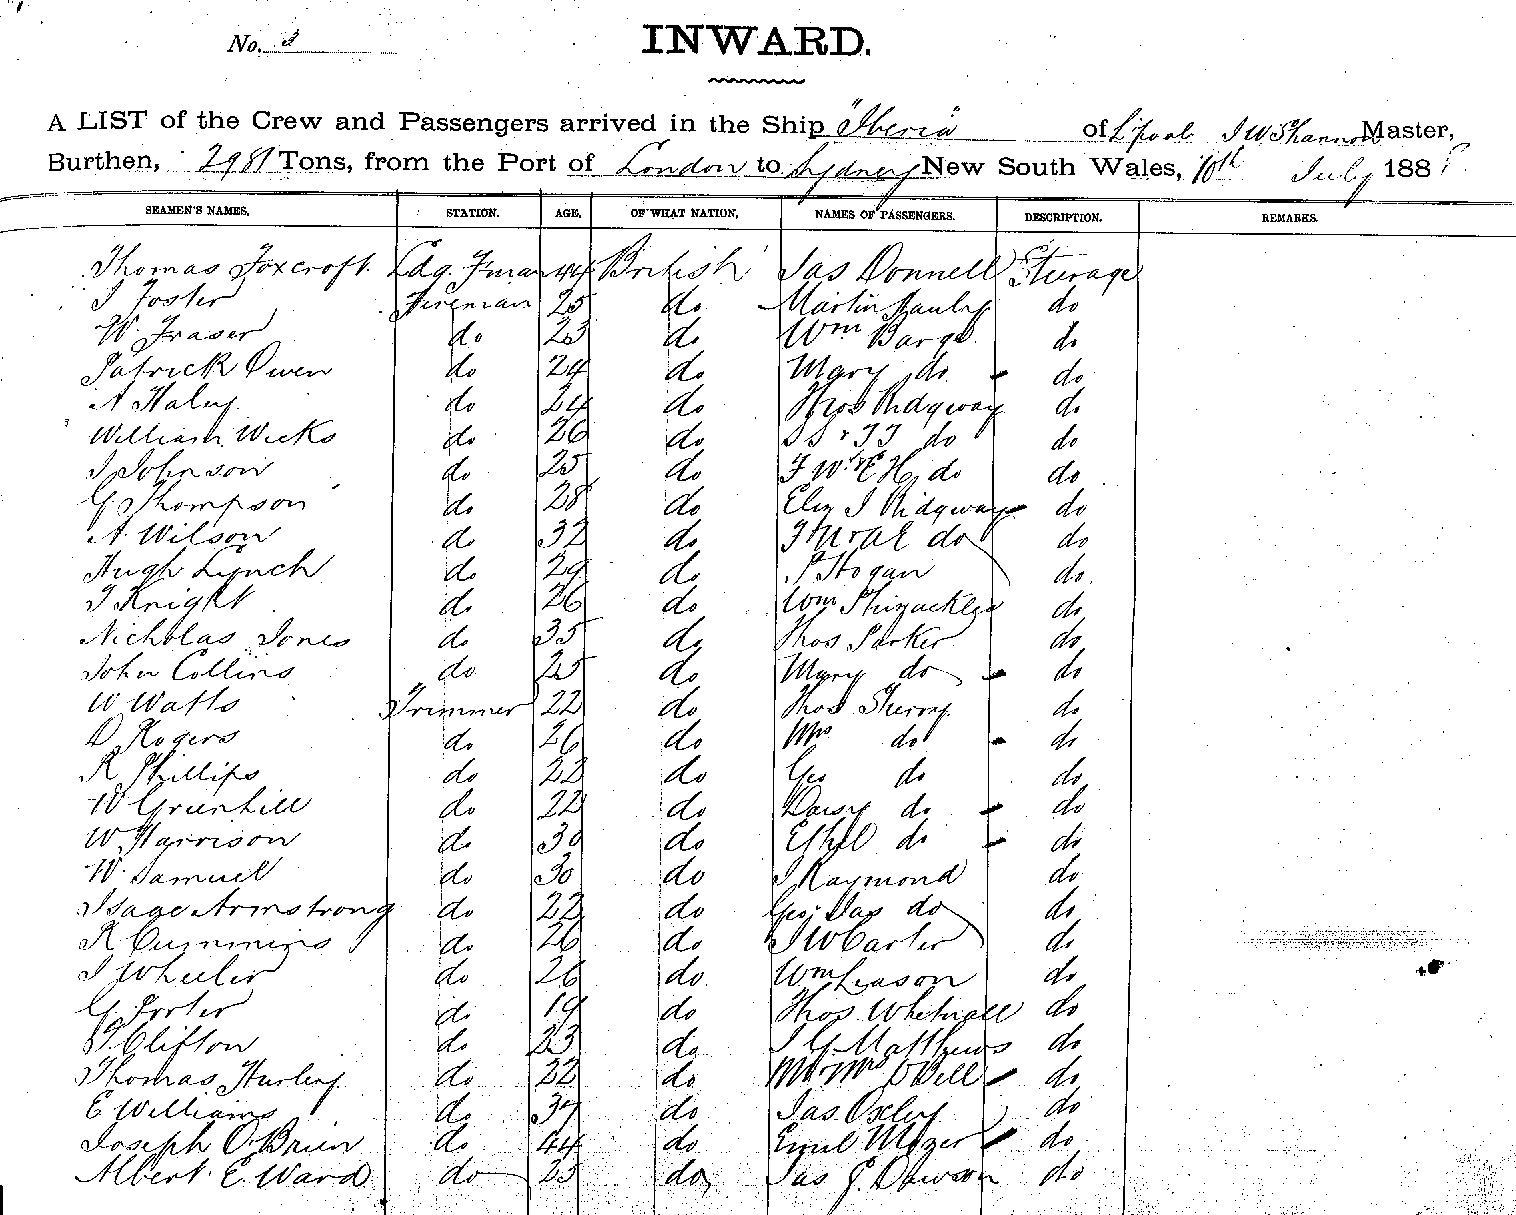 No. 3
INWARD.
A LIST of the Crew and Passengers arrived in the Ship "Iberia" of L'pool J W Shannon Master,
Burthen, 2981 Tons, from the Port of London to Sydney New South Wales, 10th July 188
SEAMEN'S NAMES. STATION. AGE. OF WHAT NATION. NAMES OF PASSENGERS. DESCRIPTION. REMARKS.
Thomas Foxcroft Ldg. Fman 44 British Jas Donnell Steerage
J Foster Fireman 25 do Martin do
W Fraser do 23 do Wm Barge do
Patrick Owen do 24 do Mary do do
A Haley do 24 do Thos Ridgway do
William Weeks do 26 do do do
J Johnson do 25 do F W & E H do do
G Thompson do 28 do Eliz J Ridgway do
A Wilson do 32 do do do
Hugh Lynch do 29 do P Hogan do
J Knight do 26 do Wm do
Nicholas Jones do 35 do Thos Parker do
John Collins do 25 do Mary do do
W Watts Trimmer 22 do Thos Sherry do
D Rogers do 26 do Mrs do do
R Phillips do 22 do Geo do do
W Greenhill do 22 do Daisy do do
W Harrison do 30 do Ethel do do
W Samuel do 30 do J Raymond do
Isaac Armstrong do 22 do Geo Jas do do
R Cummins do 26 do J W Carter do
J Wheeler do 26 do Wm Leason do
G Porter do 19 do Thos Whitnall do
T Clifton do 23 do J G Matthews do
Thomas Hurley do 22 do Mr & Mrs do
E Williams do 37 do Jas Oxley do
Joseph O'Brien do 44 do Emil Mozer do
Albert E. Ward do 25 do Jas G. Dawson do